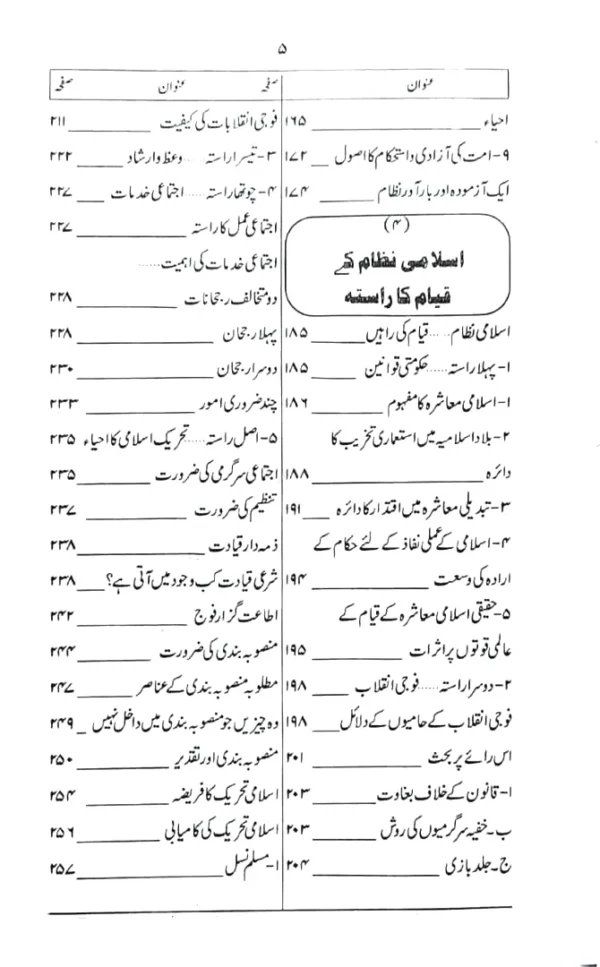 ۵
عنوان صفحہ
احیاء ۱۶۵
۹- امت کی آزادی و استحکام کا اصول ۱۷۲
ایک آزمودہ اور بار آور نظام ۱۷۴
(۴)
اسلامی نظام کے
قیام کا راستہ
اسلامی نظام ..... قیام کی راہیں ۱۸۵
۱- پہلا راستہ ..... حکومتی قوانین ۱۸۵
۱- اسلامی معاشرہ کا مفہوم ۱۸۶
۲- بلاد اسلامیہ میں استعماری تخریب کا
دائرہ ۱۸۸
۳- تبدیلی معاشرہ میں اقتدار کا دائرہ ۱۹۱
۴- اسلامی کے عملی نفاذ کے لئے حکام کے
ارادہ کی وسعت ۱۹۴
۵- حقیقی اسلامی معاشرہ کے قیام کے
عالمی قوتوں پر اثرات ۱۹۵
۲- دوسرا راستہ ..... فوجی انقلاب ۱۹۸
فوجی انقلاب کے حامیوں کے دلائل ۱۹۸
اس رائے پر بحث ۲۰۱
۱- قانون کے خلاف بغاوت ۲۰۳
ب- خفیہ سرگرمیوں کی روش ۲۰۳
ج- جلد بازی ۲۰۴
عنوان صفحہ
فوجی انقلابات کی کیفیت ۲۱۱
۳- تیسرا راستہ ..... وعظ و ارشاد ۲۲۲
۴- چوتھا راستہ ..... اجتماعی خدمات ۲۲۷
اجتماعی عمل کا راستہ ۲۲۷
اجتماعی خدمات کی اہمیت .....
دو متخالف رجحانات ۲۲۸
پہلا رجحان ۲۲۸
دوسرا رجحان ۲۳۰
چند ضروری امور ۲۳۳
۵- اصل راستہ ..... تحریک اسلامی کا احیاء ۲۳۵
اجتماعی سرگرمی کی ضرورت ۲۳۵
تنظیم کی ضرورت ۲۳۷
ذمہ دار قیادت ۲۳۸
شرعی قیادت کب وجود میں آتی ہے؟ ۲۳۸
اطاعت گزار فوج ۲۴۲
منصوبہ بندی کی ضرورت ۲۴۴
مطلوبہ منصوبہ بندی کے عناصر ۲۴۷
وہ چیزیں جو منصوبہ بندی میں داخل نہیں ۲۴۹
منصوبہ بندی اور تقدیر ۲۵۰
اسلامی تحریک کا فریضہ ۲۵۴
اسلامی تحریک کی کامیابی ۲۵۶
۱- مسلم نسل ۲۵۷